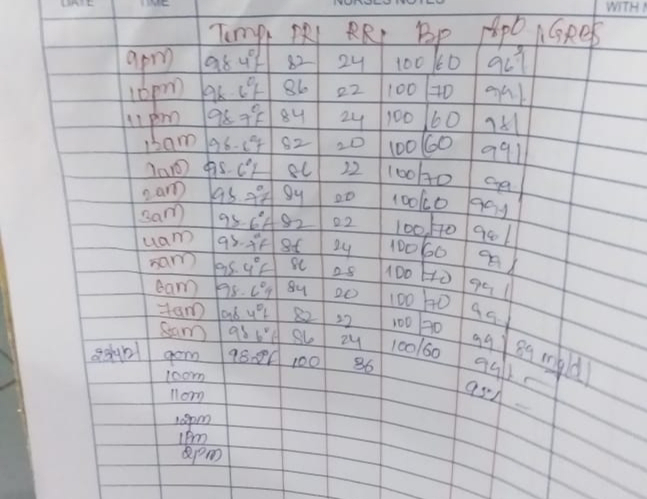 DATE TIME NURSES NOTES WITH
Temp. PR RR BP SpO2 GRBS
9pm 98.4°F 82 24 100/60 96%
10pm 98.6°F 86 22 100/70 99%
11pm 98.7°F 84 24 100/60 98%
12am 98.6°F 82 20 100/60 99%
1am 98.6°F 86 22 100/70 99
2am 98.7°F 84 20 100/60 99%
3am 98.6°F 82 22 100/70 98%
4am 98.7°F 86 24 100/60 99%
5am 98.4°F 86 28 100/70 99%
6am 98.6°F 84 20 100/70 99
7am 98.4°F 82 22 100/70 99%
8am 98.6°F 86 24 100/60 99% 89 mg/dl
9am 100 36 95%
10am
11am
12pm
1pm
2pm